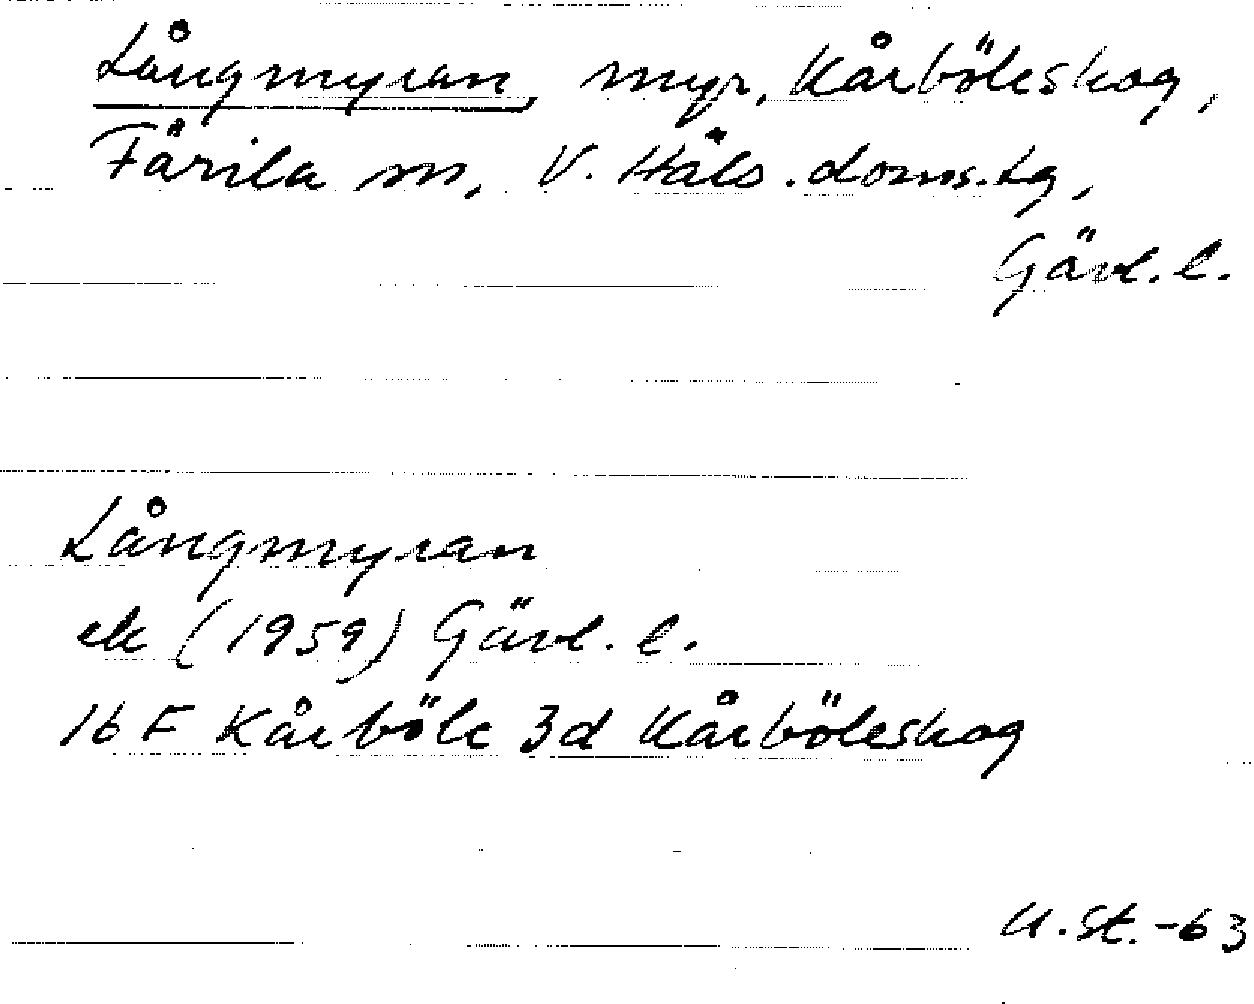 Långmyran, myr, Kårböleskog,
Färila sn, V. Häls. doms.tg,
Gävl. l.
Långmyran
ek (1959) Gävl. l.
16 F Kårböle 3d Kårböleskog
U.St.-63